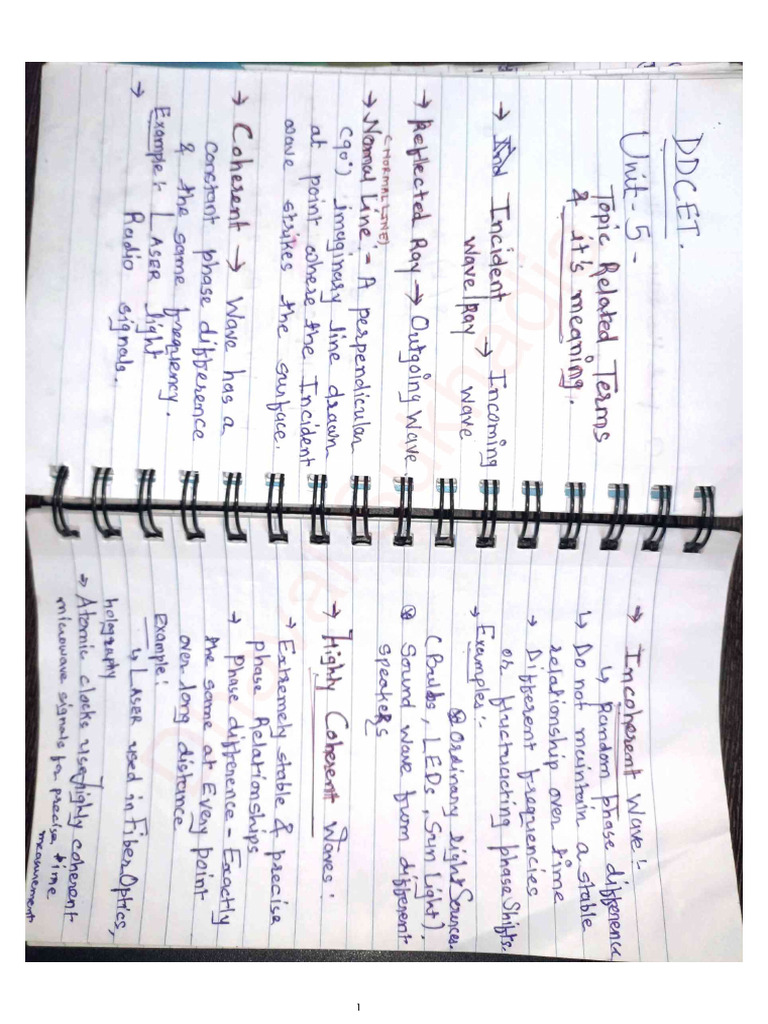 DDCET.
Unit-5 -
Topic Related Terms
& it's meaning.
→ Incident → Incoming
Wave/Ray wave
→ Reflected Ray → Outgoing Wave.
(NORMAL LINE)
→ Normal Line :- A perpendicular
(90°) imaginary line drawn
at point where the Incident
wave strikes the surface.
→ Coherent → Wave has a
constant phase difference
& the same frequency.
Example :- LASER light
→ Radio signals.
→ Incoherent Wave :-
↳ Random phase difference
↳ Do not maintain a stable
relationship over time
→ Different frequencies
or fluctuating phase shifts.
→ Examples :-
Ordinary light Sources.
(Bulbs, LEDs, Sun Light).
Sound wave from different
speakers
→ Highly Coherent Waves :
→ Extremely stable & precise
phase Relationships
→ Phase difference - Exactly
the same at Every point
over long distance
Example :
↳ LASER used in Fiber Optics,
holography
→ Atomic clocks use highly coherent
microwave signals for precise time
measurement
1